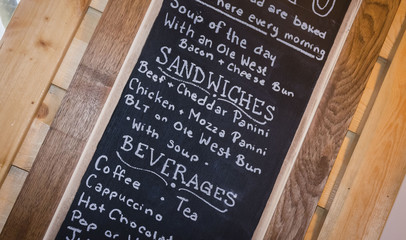 ad are baked
here every morning
Soup of the day
With an Ole West
Bacon + Cheese Bun
SANDWICHES
Beef + Cheddar Panini
Chicken + Mozza Panini
BLT on Ole West Bun
• With soup •
BEVERAGES
Coffee • Tea
Cappuccino
Hot Chocolat
Pop or